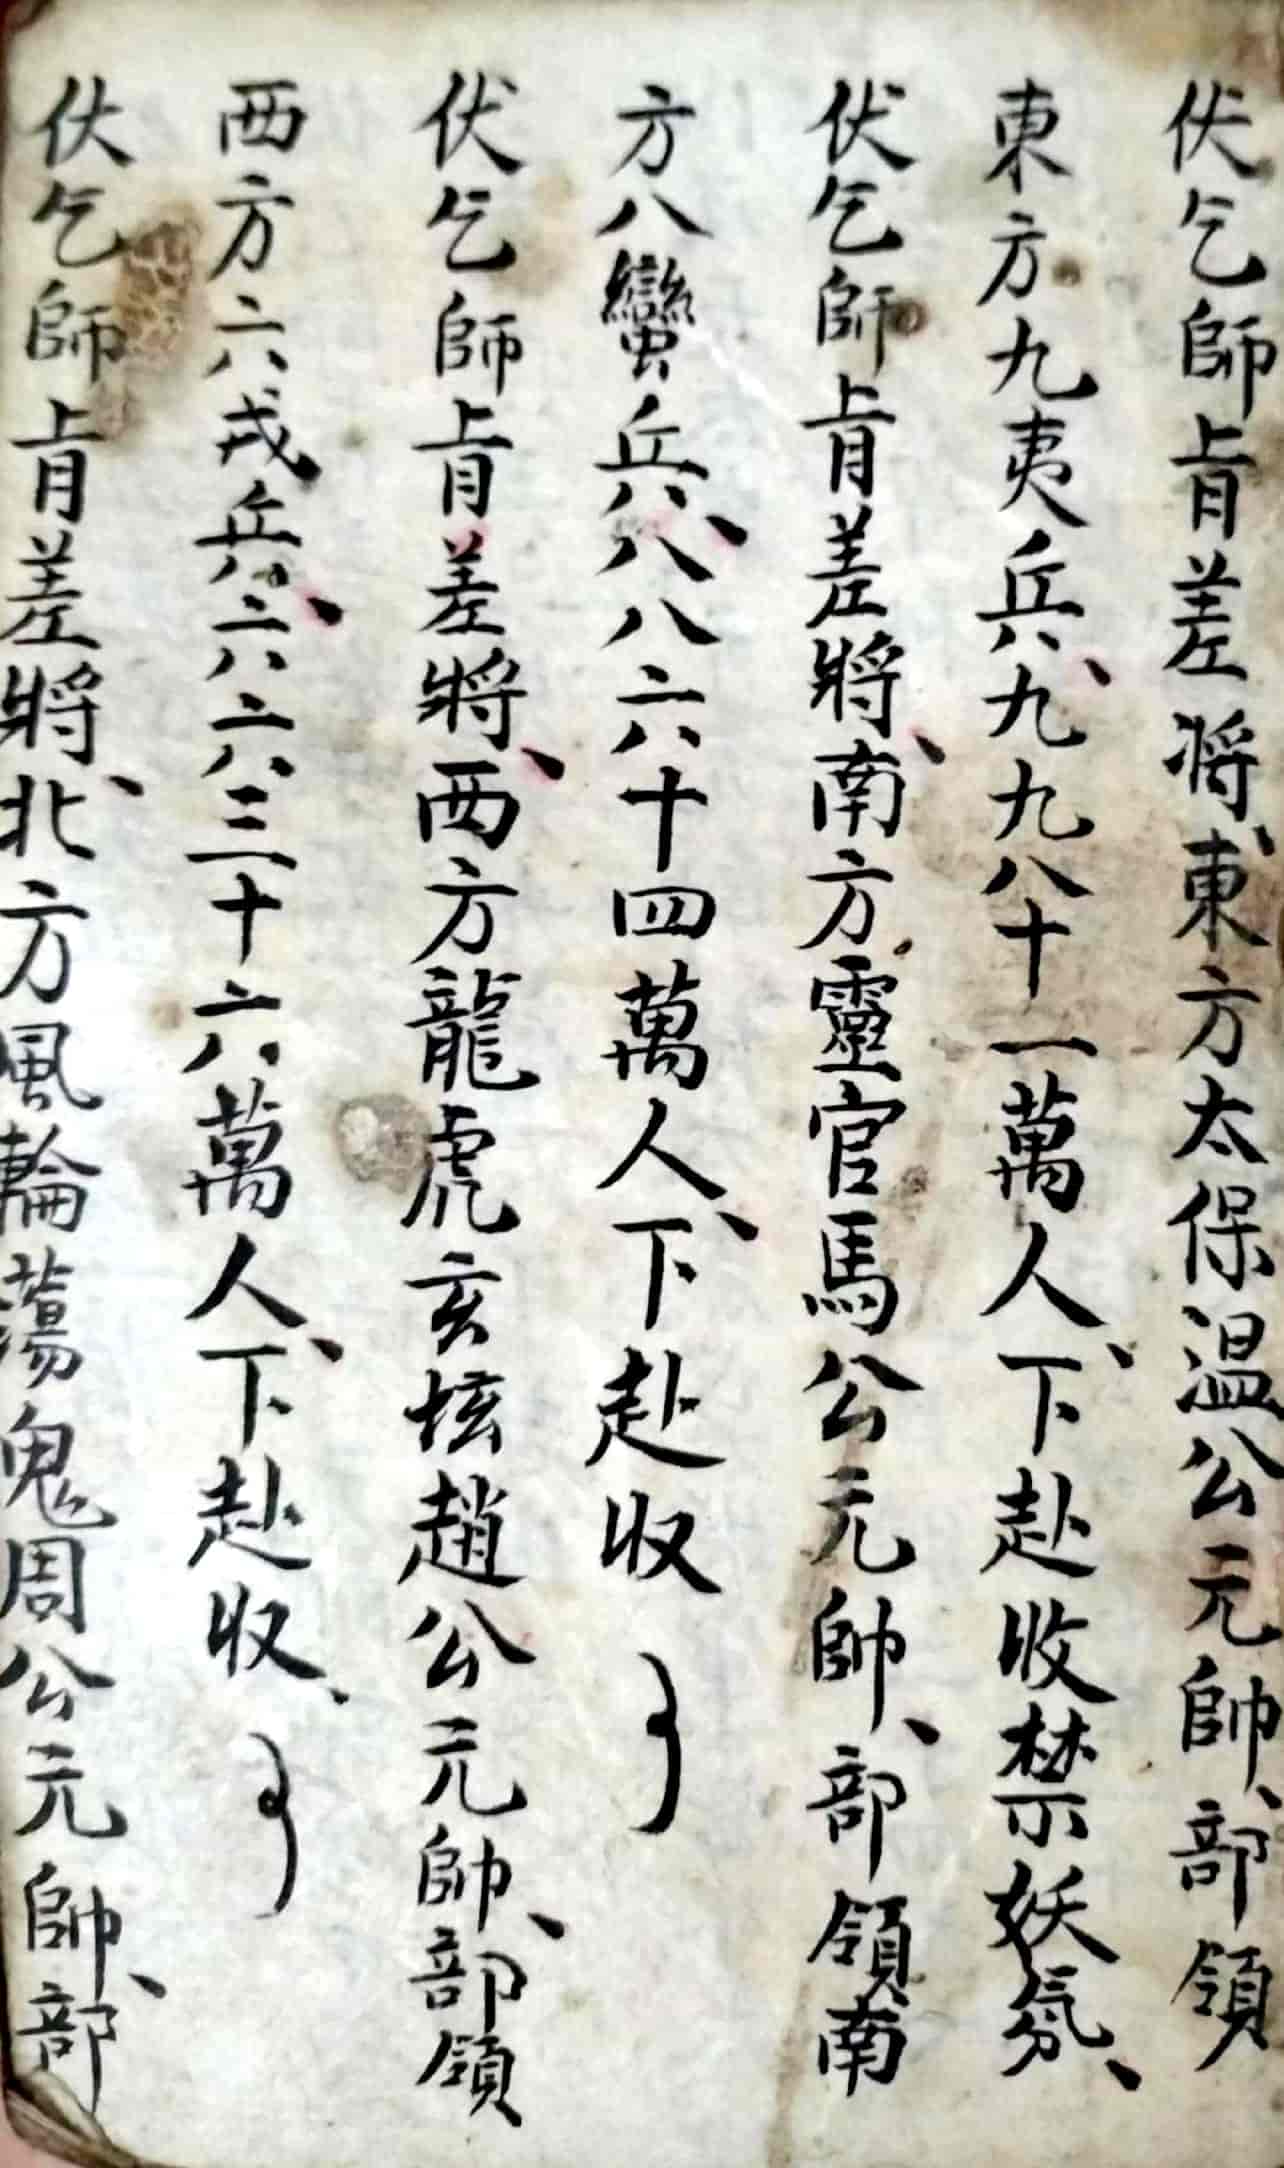 伏乞師旨差将、東方太保温公元帥、部領
東方九夷兵、九九八十一萬人、下赴收禁妖氛、
伏乞師旨差將、南方靈官馬公元帥、部領南
方八蠻兵、八八六十四萬人、下赴収
伏乞師旨差將、西方龍虎玄坛趙公元帥、部領
西方六戎兵、六六三十六萬人、下赴収、
伏乞師旨差將、北方風輪蕩鬼周公元帥、部